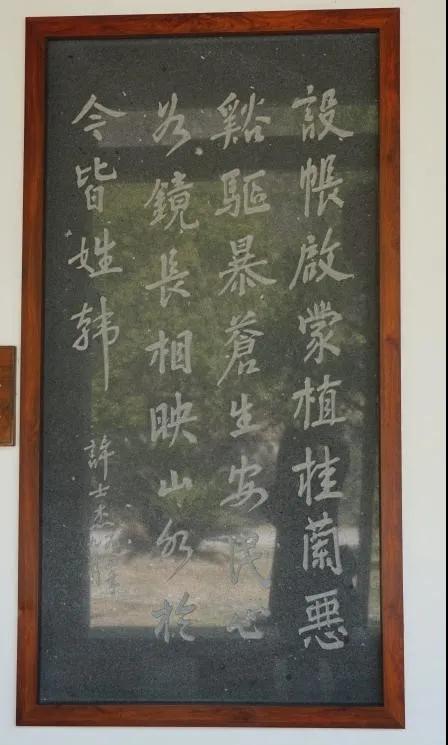 設帳啟蒙植桂蘭惡
谿驅暴蒼生安民心
若鏡長相映山水於
今皆姓韩
許士杰